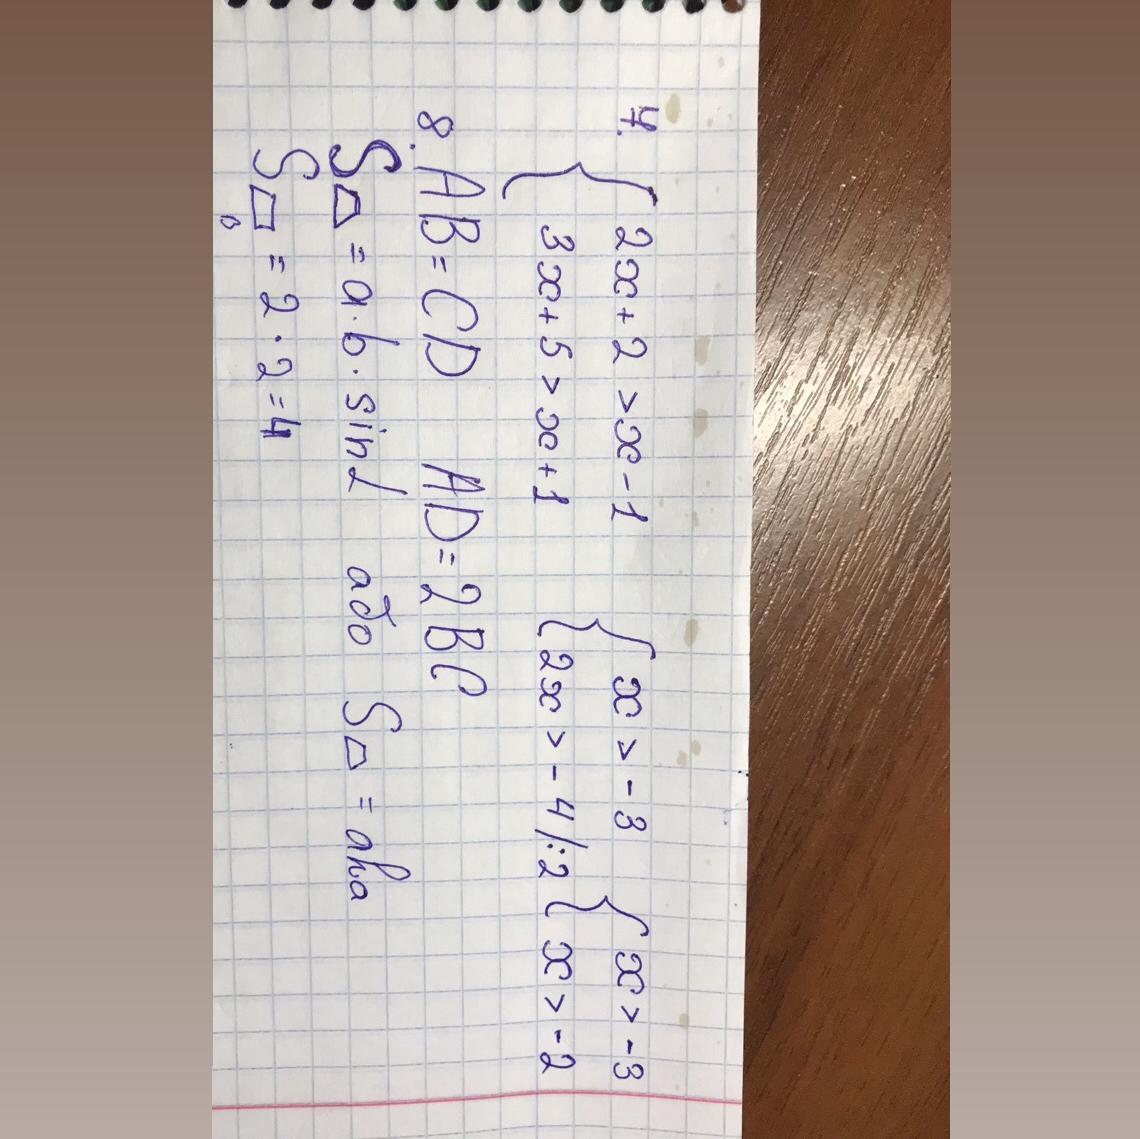 4. { 2x + 2 > x - 1 { x > - 3 { x > -3
3x + 5 > x + 1 2x > - 4 |:2 x > -2
8. AB = CD AD = 2BC
S⏢ = a · b · sinα або S⏢ = aha
S▱ = 2 · 2 = 4